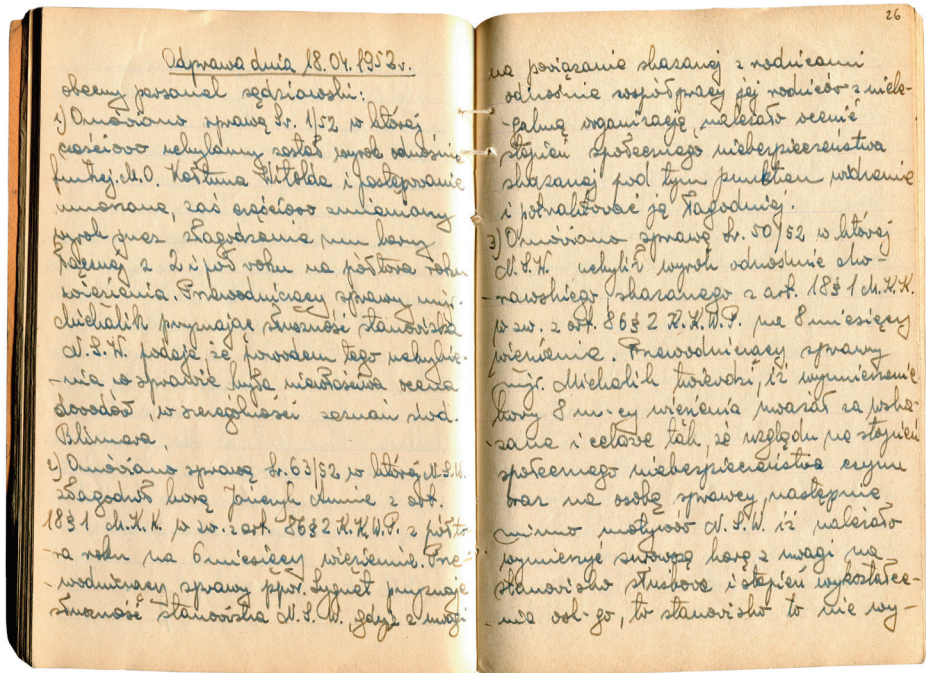 Odprawa dnia 18.04.1952r.
obecny personel sędziowski:
1) Omówiono sprawę Sr. 1/52 w której
częściowo uchylony został wyrok odnośnie
funkcj. M.O. Kołtuna Witolda i postępowanie
umorzone, zaś częściowo zmieniony
wyrok przez złagodzenie mu kary
łącznej z 2 i pół roku na półtora roku
więzienia. Przewodniczący sprawy mjr.
Michalik przyznając słuszność stanowiska
N.S.W. podaje, że powodem tego uchybie-
-nia w sprawie była niewłaściwa ocena
dowodów, w szczególności zeznań świad.
2) Omówiono sprawę Sr. 63/52 w której N.S.W.
złagodził karę Annie z art.
18 § 1 M.K.K. w zw. z art. 86 § 2 K.K.W.P. z półto-
-ra roku na 6 miesięcy więzienia. Prze-
-wodniczący sprawy ppłk. Sygnet przyznaje
słuszność stanowiska N.S.W., gdyż z uwagi
26
na powiązanie skazanej z rodzicami
odnośnie współpracy jej rodziców z niele-
-galną organizacją, należało ocenić
stopień społecznego niebezpieczeństwa
skazanej pod tym punktem widzenia
i potraktować ją łagodniej.
3) Omówiono sprawę Sr. 50/52 w której
N.S.W. uchylił wyrok odnośnie
skazanego z art. 18 § 1 M.K.K.
w zw. z art. 86 § 2 K.K.W.P. na 8 miesięcy
więzienia. Przewodniczący sprawy
mjr. Michalik twierdzi, iż wymierzenie
kary 8 m-cy więzienia uważał za wska-
-zane i celowe tak, ze względu na stopień
społecznego niebezpieczeństwa czynu
oraz na osobę sprawcy, następnie
mimo motywów N.S.W. iż należało
wymierzyć surowszą karę z uwagi na
stanowisko służbowe i stopień wykształce-
-nia osk-go, to stanowisko to nie wy-